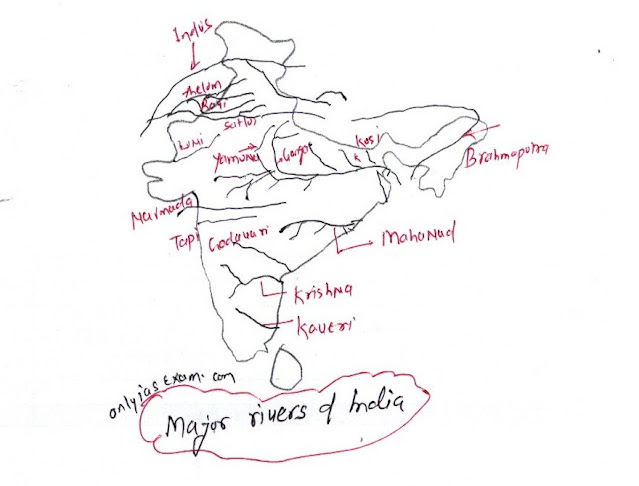 Indus
Jhelum
Ravi
Satluj
Luni
Yamuna
Ganga
Kosi
Brahmaputra
Narmada
Tapi
Godavari
Mahanad
Krishna
Kaveri
onlyiasexam.com
Major rivers of India